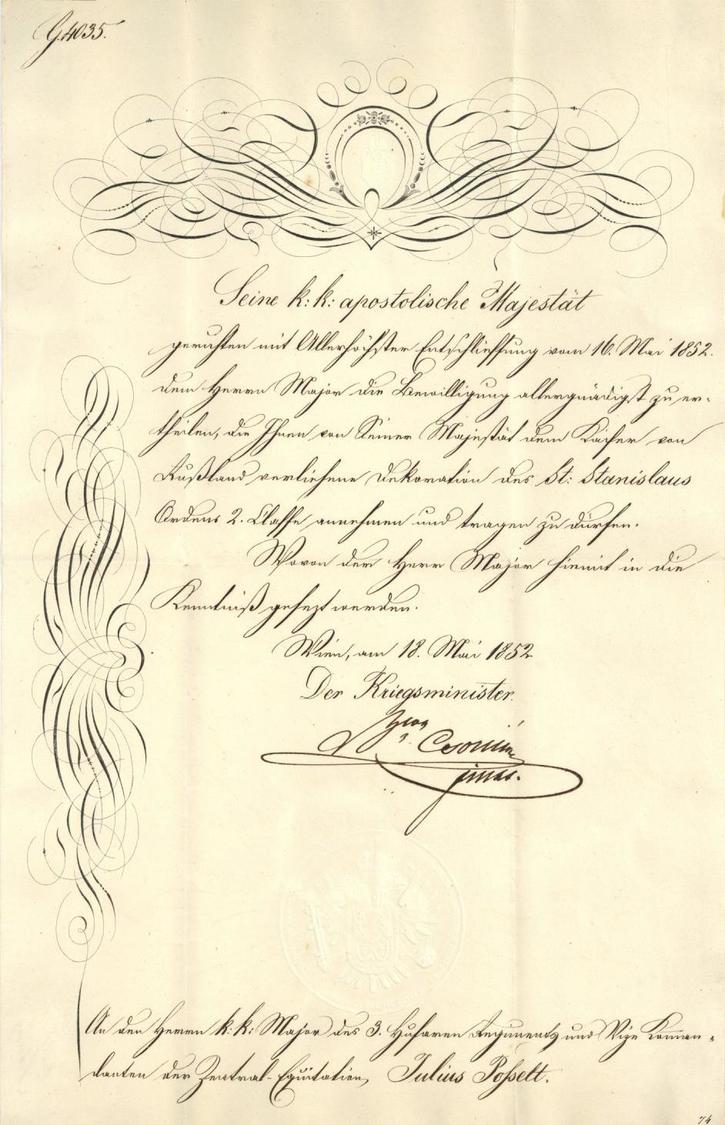 G. 4035.
Seine k: k: apostolische Majestät
geruhten mit Allerhöchster Entschliessung vom 16. Mai 1852.
dem Herrn Major die Bewilligung allergnädigst zu er-
theilen, die Ihnen von Seiner Majestät dem Kaiser von
Rußland verliehene Dekoration des St: Stanislaus
Ordens 2. Classe annehmen und tragen zu dürfen.
Wovon der Herr Major hiemit in die
Kenntniß gesezt werden.
Wien, am 18. Mai 1852
Der Kriegsminister.
Csorich
An den Herrn k. k: Major des 3. Husaren Regiments und Vize Komman-
danten der Zentral-Equitation, Julius Posselt.
74